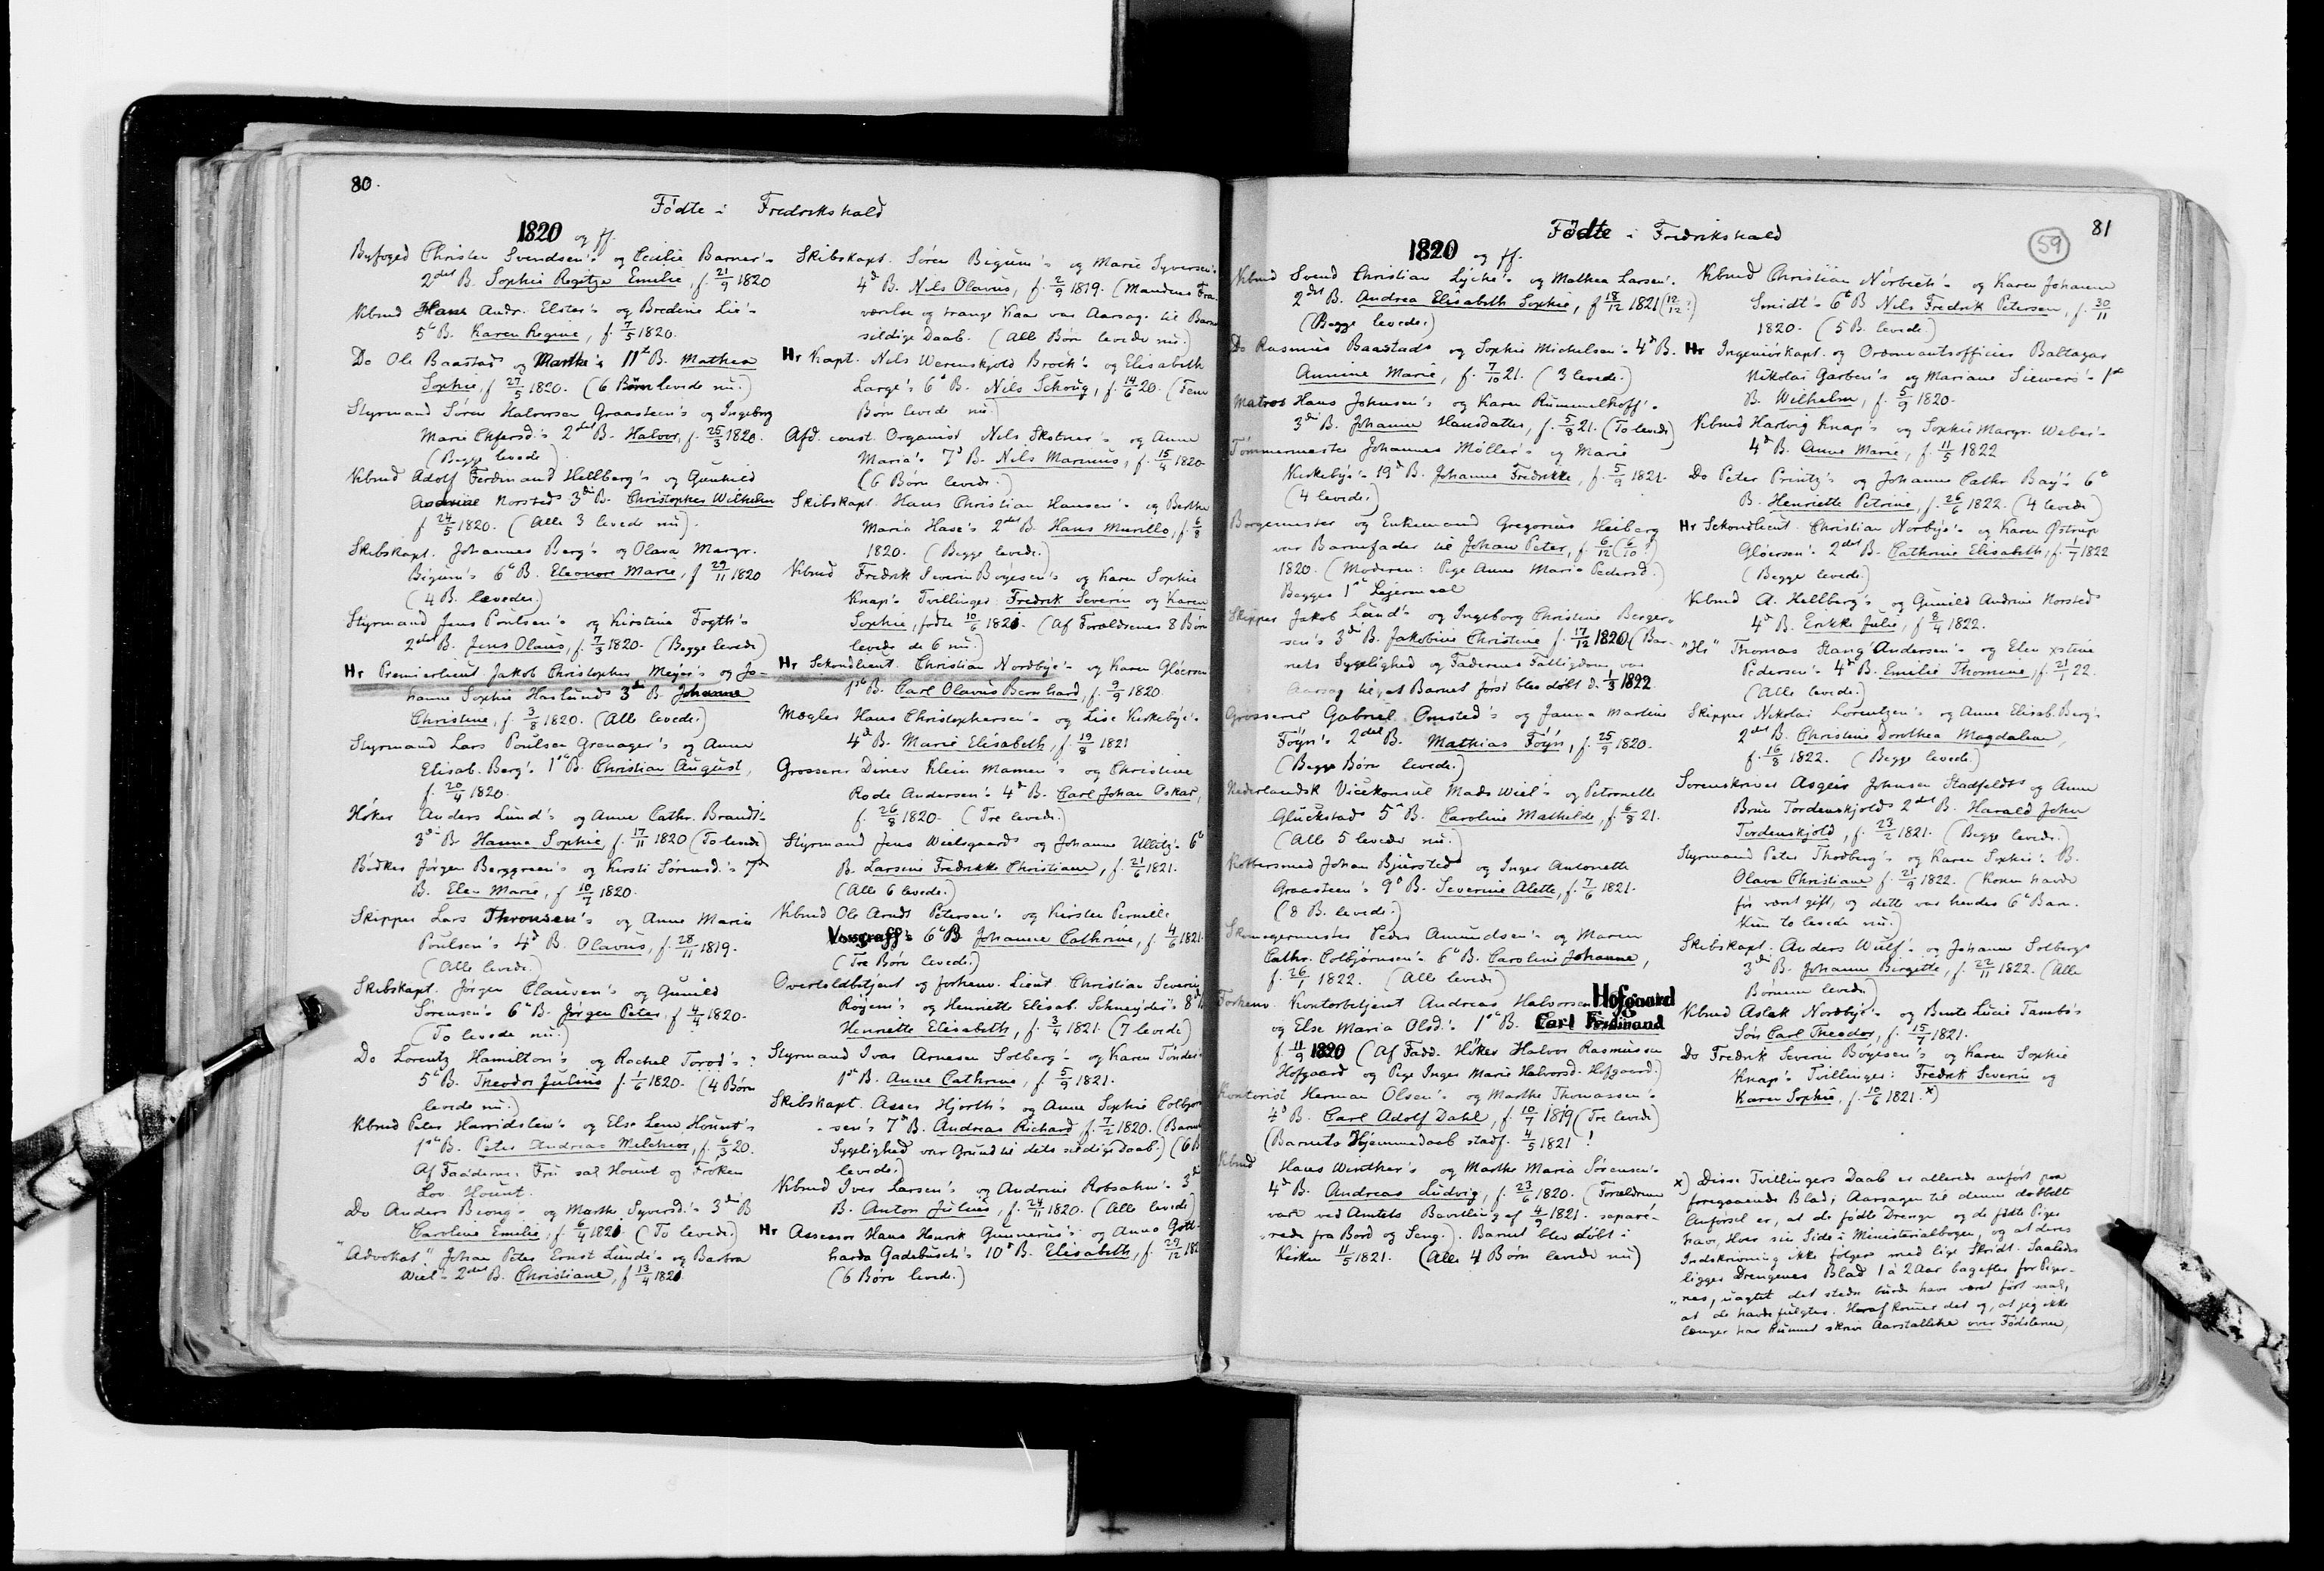 80.
Födte i Fredrikshald
1820 og ff.
Byfoged Christen Svendsen's og Cecilie Barner's
2det B. Sophie Regitze Emilie, f. 21/9 1820
Kbmd Hans Andr. Elster's og Bredine Lie's
5te B. Karen Regine, f. 7/5 1820.
Do Ole Baastad's og Marthe's 11te B. Mathea
Sophie, f 27/5 1820. (6 Børn levede nu.)
Styrmand Søren Halvorsen Graasteen's og Ingeborg
Marie 2det B. Halvor, f. 25/3 1820.
(Begge levede)
Kbmd Adolf Ferdinand Hellberg's og Gunhild
Andrine Norsted's 3die B. Christopher Wilhelm
f 24/5 1820. (Alle 3 levede nu).
Skibskapt. Johannes Berg's og Olava Margr.
Bigum's 6te B. Eleonore Marie, f 29/11 1820
(4 B. levede.)
Styrmand Jens Poulsen's og Kirstine Fogth's
2det B. Jens Olaus, f. 7/3 1820. (Begge levede)
Hr Premierlieut Jakob Christopher Meyer's og Jo-
hanne Sophie Haslund's 3die B. Johanne
Christine, f. 3/8 1820. (Alle levede.)
Styrmand Lars Poulsen Grenager's og Anne
Elisab. Berg's 1ste B. Christian August,
f. 20/4 1820.
Höker Anders Lund's og Anne Cathr. Brandt's
3die B. Hanna Sophie, f. 17/11 1820 (To levede)
Bödker Jørgen Berggreen's og Kirsti Sørensd.'s 7de
B. Elen Marie, f 10/7 1820.
Skipper Lars Thronsen's og Anne Marie
Poulsen's 4de B. Olavus, f. 28/11 1819.
(Alle levede.)
Skibskapt. Jørgen Clausen's og Gunild
Sørensen's 6te B. Jørgen Peter, f 4/4 1820.
(To levede nu.)
Do Lorentz Hamilton's og Rachel Torod's:
5te B. Theodor Julius f. 1/6 1820. (4 Børn
levede nu.)
Kbmd Peter Harridslew's og Else Lene Hount's
1ste B. Peter Andreas Melchior, f. 6/3 20.
Af Faadderne: Fru sal Hount og Frøken
Lov. Hount.
Do Anders Brong's og Marthe Syversd.'s 3die B
Caroline Emilie, f. 6/4 1820 (To levede.)
"Advokat" Johan Peter Ernst Lund's og Barbra
Wiel's 2det B. Christiane, f 13/4 1820
Skibskapt. Søren Bigum's og Marie Syversen's
4de B. Nils Olavus, f. 2/9 1819. (Mandens Fra-
værelse og trange Kaar var Aarsag til Barnets
sildige Daab. (Alle Børn levede nu.)
Hr Kapt. Nils Werenskjold Brock's og Elisabeth
Large's 6te B. Nils Schoug, f. 14/6 20. (Fem
Børn levede nu.)
Afd. const. Organist Nils Skotner's og Anne
Maria's 7de B. Nils Marinius, f. 15/4 1820.
(6 Børn levede.)
Skibskapt. Hans Christian Hansen's og Berthe
Maria Hase's 2det B. Hans Murillo, f. 6/8
1820. (Begge levede.)
Kbmd Fredrik Severin Boyesen's og Karen Sophie
Knap's Tvillinger: Fredrik Severin og Karen
Sophie, fødte 10/6 1820. (Af Forældrenes 8 Børn
levede de 6 nu.)
Hr Sekondlieut. Christian Nordbye's og Karen Glöersen
1ste B. Carl Olavus Bernhard, f. 9/9 1820
Mægler Hans Christophersen's og Lise Kirkebye's
4de B. Marie Elisabeth, f. 19/8 1821
Grosserer Dines Klein Mamen's og Christine
Rode Andersen's 4de B. Carl Johan Oskar,
f. 26/8 1820. (Tre levede.)
Styrmand Jens Wielsgaard's og Johanne Ullitz's 6te
B. Larsine Fredrikke Christiane, f. 21/6 1821.
(Alle 6 levede.)
Kbmd Ole Arndt Petersen's og Kirsten Pernille
Vovgraff's 6te B Johanne Cathrine, f. 4/6 1821.
(Tre Børn levede.)
Overtoldbetjent og forhenv. Lieut. Christian Severin
Röyem's og Henriette Elisab. Schneyder's 8de B
Henriette Elisabeth, f. 3/4 1821. (7 levede)
Styrmand Ivar Arnesen Solberg's og Karen Tönder's
1ste B. Anne Cathrine, f. 5/9 1821.
Skibskapt. Asser Hjorth's og Anne Sophie Colbjørn-
sen's 7de B. Andreas Richard f. 7/2 1820. (Barnets
Sygelighed var Grund til dets sildige Daab.) (6 B
levede.)
Kbmd Iver Larsen's og Andrine Robsahm's 3die
B. Anton Julius, f. 24/11 1820. (Alle levede)
Hr Assessor Hans Henrik Gunnerius's og Anna Gott-
harda Gadebusch's 10de B. Elisabeth, f. 29/12 182
(6 Børn levede.)
81
59
Födte i Fredrikshald
1820 og ff.
Kbmd Svend Christian Lyche's og Mathea Larsen's
2det B. Andrea Elisabeth Sophie, f 18/12 1821 (12/12?)
(Begge levede.)
Do Rasmus Baastad's og Sophie Michelsen's 4de B.
Annine Marie, f. 7/10 21. (3 levede.)
Matros Hans Johnsen's og Karen Rummelhoff's
3die B. Johanne Hansdatter, f. 5/8 21. (To levede)
Tömmermester Johannes Möller's og Marie
Kirkebye's 19de B. Johanne Fredrikke, f. 5/9 1821.
(4 levede.)
Borgermester og Enkemand Gregorius Heiberg
var Barnefader til Johan Peter, f. 6/12 (6/10?)
1820. (Moderen: Pige Anne Maria Pedersd.)
Begges 1ste Lejermaal
Skipper Jakob Lund's og Ingeborg Christine Berger-
sen's 3die B. Jakobine Christine f. 17/12 1820 (Bar-
nets Sygelighed og Faderens Fattigdom var
Aarsag til, at Barnet først blev døbt d. 1/3 1822.
Grosserer Gabriel Omsted's og Janna Martine
Föyn's 2det B. Mathias Föyn, f. 25/9 1820.
(Begge Børn levede.)
Nederlandsk Vicekonsul Mads Wiel's og Petronelle
Glückstad's 5te B. Caroline Mathilde, f. 6/8 21.
(Alle 5 levede nu.)
Kobbersmed Johan Bjursted's og Inger Antonette
Graasteen's 9de B. Severine Alette, f. 7/6 1821.
(8 B. levede.)
Skomagermester Peder Amundsen's og Maren
Cathr. Colbjörnsen's 6te B. Caroline Johanne,
f. 26/1 1822. (Alle levede)
Forhenv. Kontorbetjent Andreas Halvorsen Hofgaard
og Else Maria Olsd.'s 1ste B. Carl Ferdinand
f. 11/9 1820 (Af Fadd. Höker Halvor Rasmussen
Hofgaard og Pige Inger Marie Halvorsd. Hofgaard.)
Kontorist Herman Olsen's og Marthe Thomassen's
4de B. Carl Adolf Dahl, f. 10/7 1819 (Tre levede)
(Barnets Hjemmedaab stadf. 4/5 1821!
Kbmd Hans Winther's og Marthe Maria Sörensen's
4de B. Andreas Ludvig, f. 23/6 1820. (Forældrene
vare ved Amtets Bevilling af 4/9 1821. separe-
rede fra Bord og Seng.). Barnet blev döbt i
Kirken 11/5 1821. (Alle 4 Børn levede nu)
Kbmd Christian Nörbech's og Karen Johanne
Smidt's 6te B Nils Fredrik Petersen, f. 30/11
1820. (5 B. levede)
Hr Ingeniörkapt. og Ordonnantsofficier Baltazar
Nikolai Garben's og Mariane Siewers's 1ste
B. Wilhelm, f. 5/9 1820.
Kbmd Hartvig Knap's og Sophie Margr. Weber's
4de B. Anne Marie, f. 11/5 1822
Do Peter Printz's og Johanne Cathr Bay's 6te
B. Henriette Petrine, f. 26/6 1822. (4 levede)
Hr Sekondlieut. Christian Norbye's og Karen Østrup
Glöersen's 2det B. Cathrine Elisabeth, f. 1/7 1822
(Begge levede.)
Kbmd A. Hellberg's og Gunild Andrine Norsted's
4de B. Erikke Julie, f 8/4 1822.
"Hr" Thomas Stang Andersen's og Elen xstine
Pedersen's 4de B. Emilie Thomine, f. 21/1 22.
(Alle levede.)
Skipper Nikolai Lorentzen's og Anne Elisab. Berg's
2det B. Christine Dorothea Magdalena,
f. 16/8 1822. (Begge levede.)
Sorenskriver Asgeir Johnsen Stadfeldt's og Anne
Brun Tordenskjold's 2det B. Harald John
Tordenskjold, f. 23/2 1821. (Begge levede.)
Styrmand Peter Thodberg's og Karen Sophie's B.
Olava Christiane f. 21/9 1822. (Konen havde
før været gift, og dette var hendes 6te Barn.
Kun to levede nu.)
Skibskapt. Anders Wulf's og Johanne Solberg's
3die B. Johanne Birgitte, f. 22/11 1822. (Alle
Børnene levede)
Kbmd Aslak Nordbye's og Bente Lucie Tambs's
Søn Carl Theodor, f. 15/7 1821.
Do Fredrik Severin Boyesen's og Karen Sophie
Knap's Tvillinger: Fredrik Severin og
Karen Sophie, f. 10/6 1821. x)
x) Disse Tvillingers Daab er allerede anført paa
foregaaende Blad; Aarsagen til denne dobbelte
Anførsel er, at de fødte Drenge og de fødte Piger
har, Hver sin Side i Ministerialbogen, og at deres
Indskrivning ikke følges med lige Skridt. Saaledes
ligger Drengenes Blad 1 à 2 Aar bagefter for Piger-
nes, uagtet det stedse burde have været ført saa,
at de havde fulgtes. Heraf kommer det og, at jeg ikke
længer har kunnet skrive Aarstallene over Fødslerne,